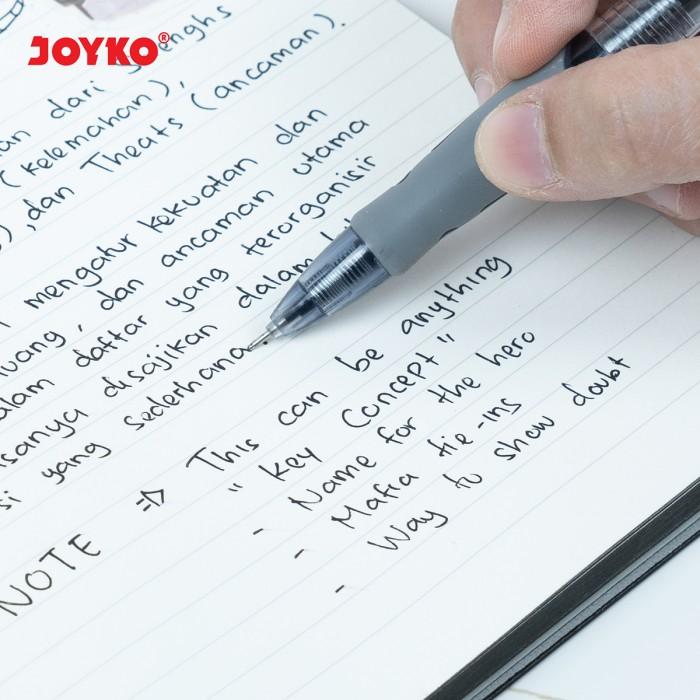 JOYKO®
dari
(kelemahan),
dan Theats (ancaman).
mengatur kekuatan dan
dan ancaman utama
daftar yang terorganisir
disajikan dalam
yang sederhana
NOTE => This can be anything
"Key Concept"
- Name for the hero
- Mafia tie-ins
- Way to show doubt